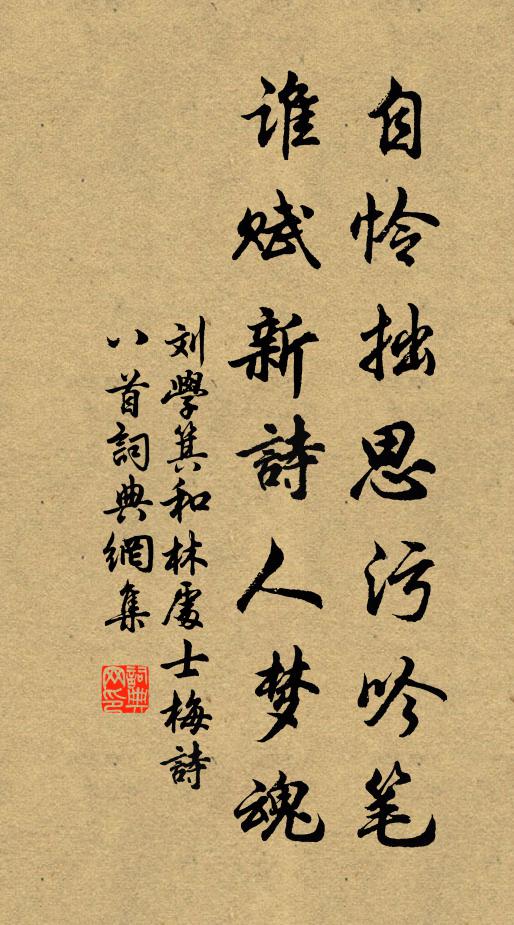 自怜拙思污吟笔
谁赋新詩人梦魂
刘學箕和林處士梅詩
八首詞典網集
詞典
网印